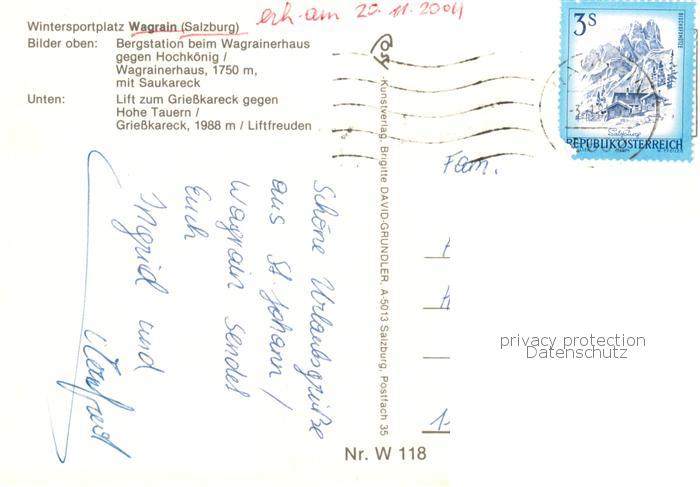 Wintersportplatz Wagrain (Salzburg)
erh. am 20.11.2004
Bilder oben: Bergstation beim Wagrainerhaus
gegen Hochkönig /
Wagrainerhaus, 1750 m,
mit Saukareck
Unten: Lift zum Grießkareck gegen
Hohe Tauern /
Grießkareck, 1988 m / Liftfreuden
Schöne Urlaubsgrüße
aus St. Johann /
Wagrain sendet
Euch
Ingrid und
Manfred
Kunstverlag, Brigitte DAVID-GRUNDLER, A-5013 Salzburg, Postfach 35
Nr. W 118
3 S
Salzburg
REPUBLIK ÖSTERREICH
Fam.
privacy protection
Datenschutz